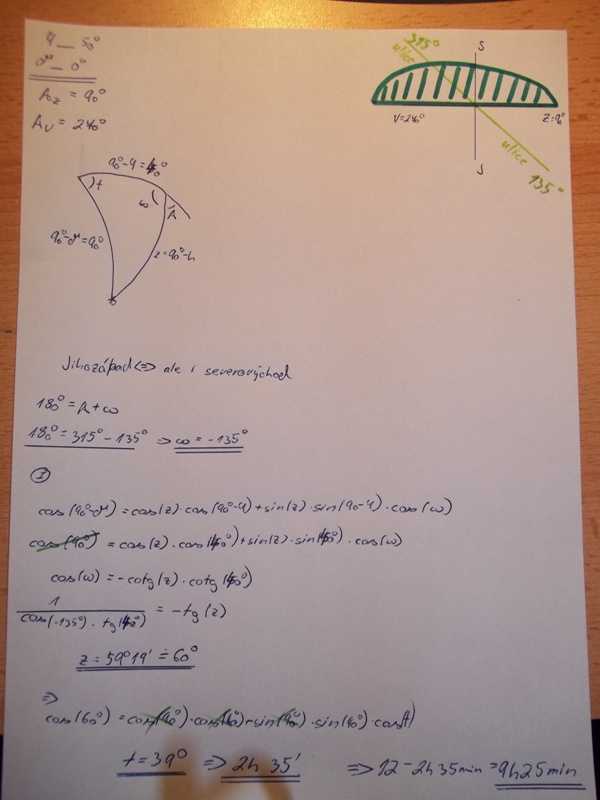 φ _ 50°
δ _ 0°
A_Z = 90°
A_V = 270°
315°
ulice
S
V=270°
Z=90°
J
ulice
135°
90°-φ=40°
t
ω
A
90°-δ=90°
z=90°-h
Jihozápad <=> ale i severovýchod
180°=A+ω
180°=315°-135° => ω=-135°
I
cos(90°-δ)=cos(z)·cos(90°-φ)+sin(z)·sin(90-φ)·cos(ω)
cos(90°)=cos(z)·cos(40°)+sin(z)·sin(40°)·cos(ω)
cos(ω)=-cotg(z)·cotg(40°)
1
cos(-135°)·tg(40°) = -tg(z)
z=59°19' ≐ 60°
=>
cos(60°)=cos(90°)·cos(40°)+sin(90°)·sin(40°)·cos(t)
t=39° => 2h 35' => 12-2h35min=9h25min